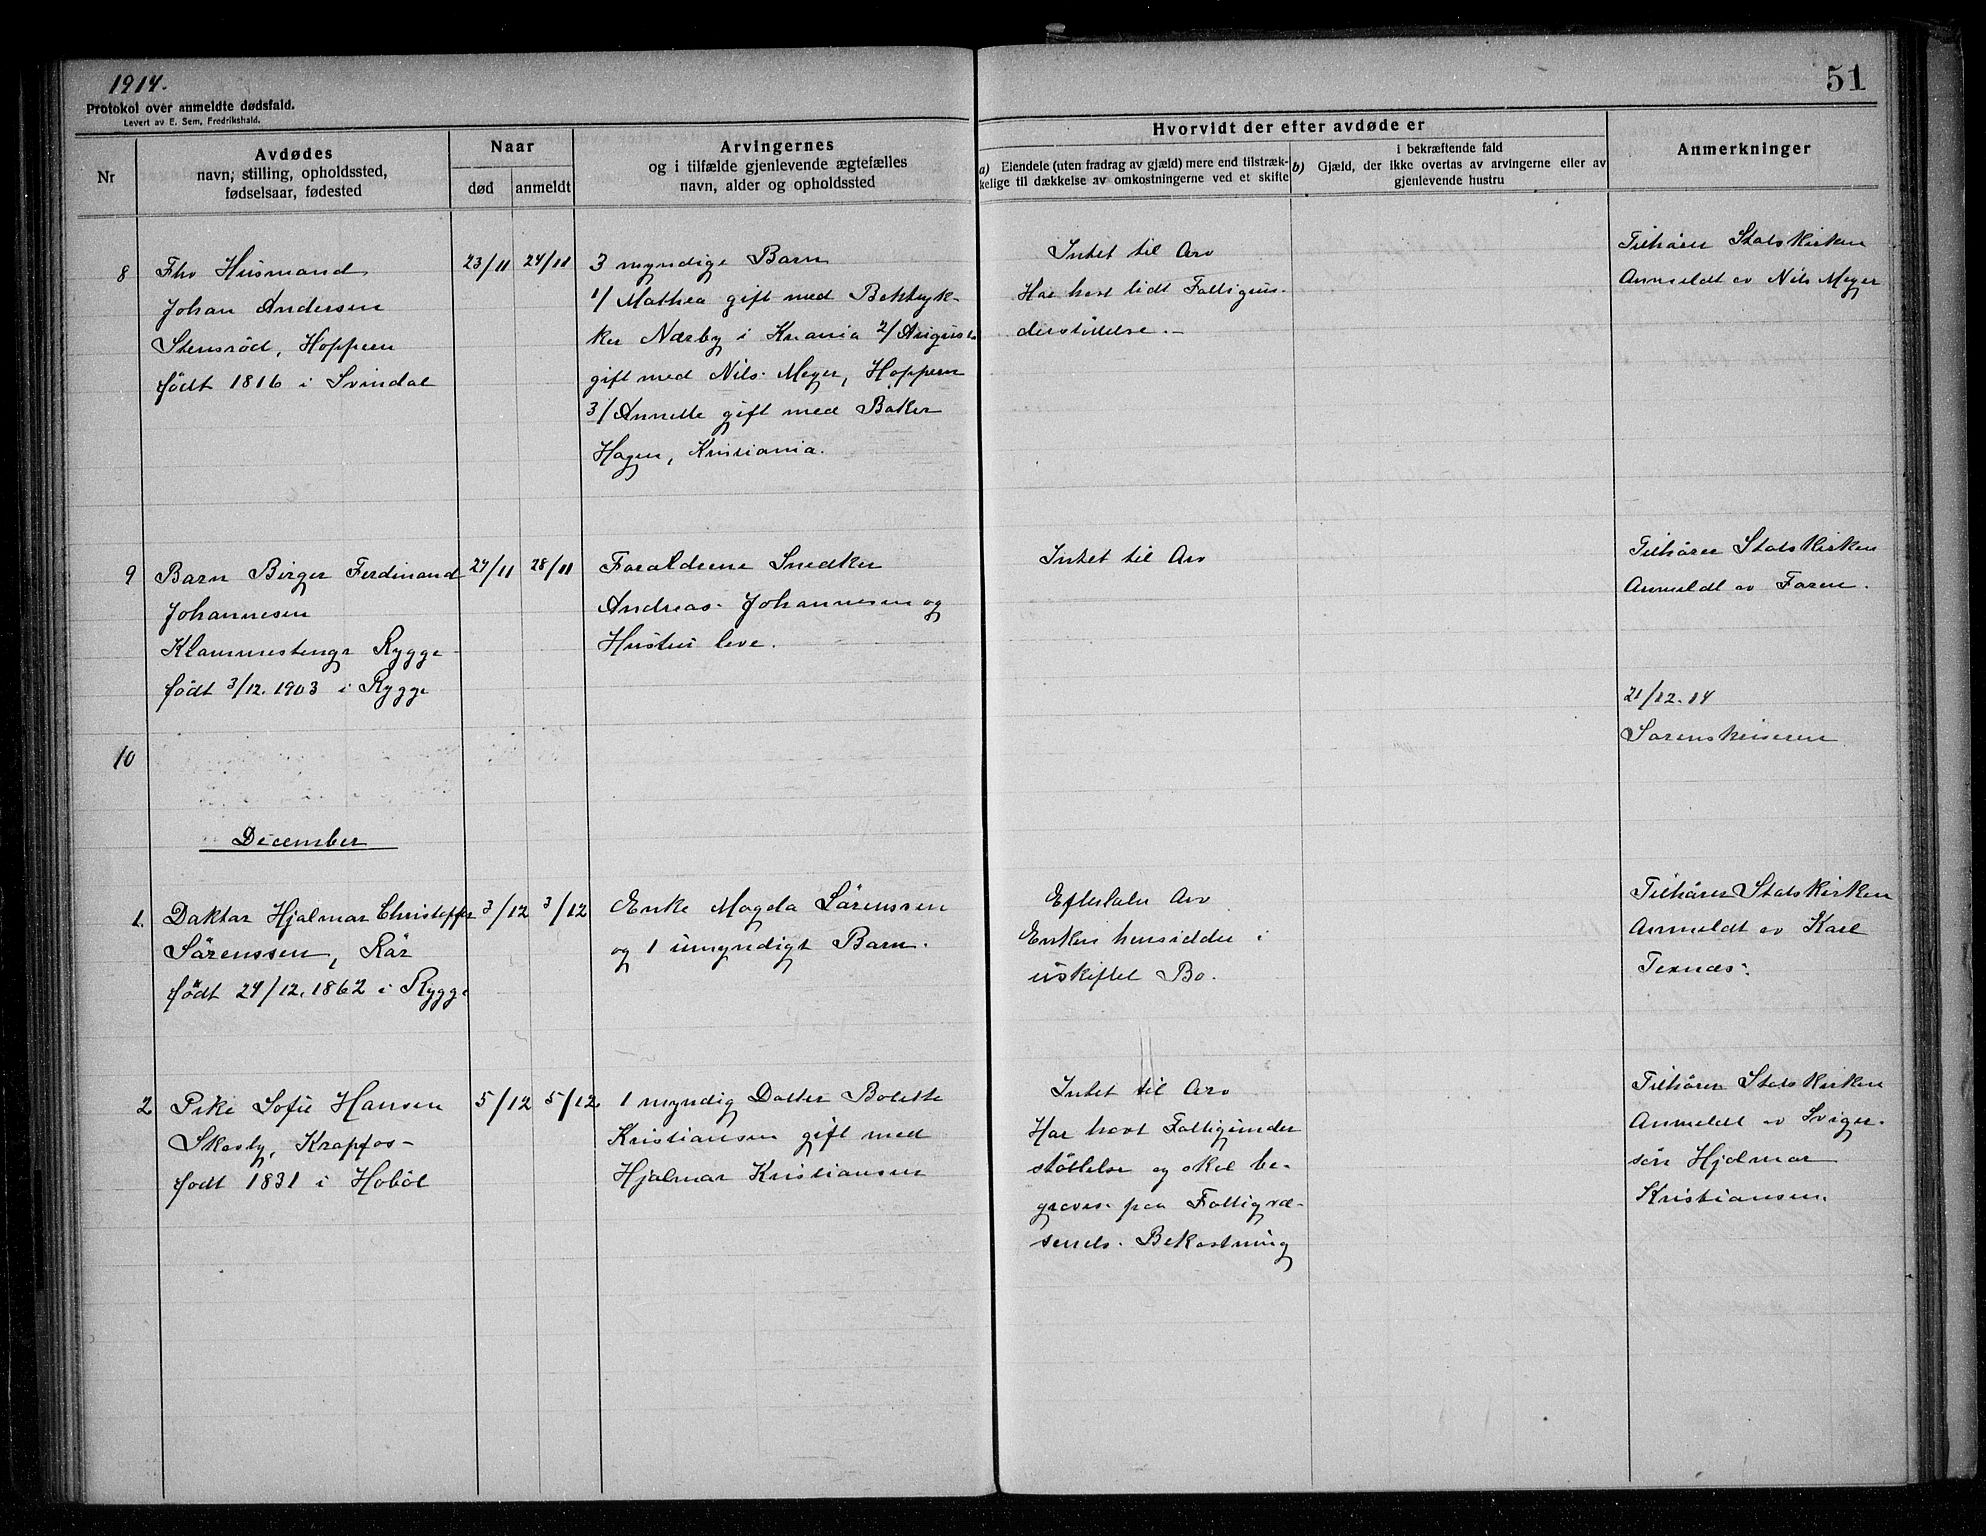 1914.
Protokol over anmeldte dødsfald.
Levert av E. Sem, Fredrikshald.
51
Nr
Avdødes
navn, stilling, opholdssted,
fødselsaar, fødested
Naar
død
anmeldt
Arvingernes
og i tilfælde gjenlevende ægtefælles
navn, alder og opholdssted
Hvorvidt der efter avdøde er
a) Eiendele (uten fradrag av gjæld) mere end tilstræk-
kelige til dækkelse av omkostningerne ved et skifte
i bekræftende fald
b) Gjæld, der ikke overtas av arvingerne eller av
gjenlevende hustru
Anmerkninger
8
Fhv Husmand
Johan Andersen
Stensröd, Hoppern
födt 1816 i Svindal
23/11
24/11
3 myndige Barn
1/ Mathea gift med
ker Nærby i Krania 2/ Auguste
gift med Nils Meyer, Hoppern
3/ Annette gift med Baker
Hagen, Kristiania.
Intet til Arv
Har havt lidt Fattigun-
derstöttelse.-
Tilhörer Statskirken
Anmeldt av Nils Meyer
9
Barn Birger Ferdinand
Johannesen
Klommestenge Rygge
födt 3/12. 1903 i Rygge
27/11
28/11
Forældrene Snedker
Andreas Johannesen og
Hustru leve.
Intet til Arv
Tilhörer Statskirken
Anmeldt av Faren.
10
21/12. 14
Sorenskriveren
December
1.
Doktor Hjalmar Christoffer
Sörenssen, Rör
födt 24/12. 1862 i Rygge
3/12
3/12
Enke Magda Sörenssen
og 1 umyndigt Barn.
Efterlater Arv
Enken hensidder i
uskiftet Bo.
Tilhörer Statskirken
Anmeldt av Karl
Texnæs.
2
Pike Sofie Hansen
Skasby, Krapfos-
födt 1831 i Haböl
5/12
5/12
1 myndig Datter Bolette
Kristiansen gift med
Hjalmar Kristiansen
Intet til Arv
Har havt Fattigunder
stöttelse og skal be-
graves paa Fattigvæ-
senets Bekostning
Tilhörer Statskirken
Anmeldt av Sviger-
sön Hjalmar
Kristiansen.